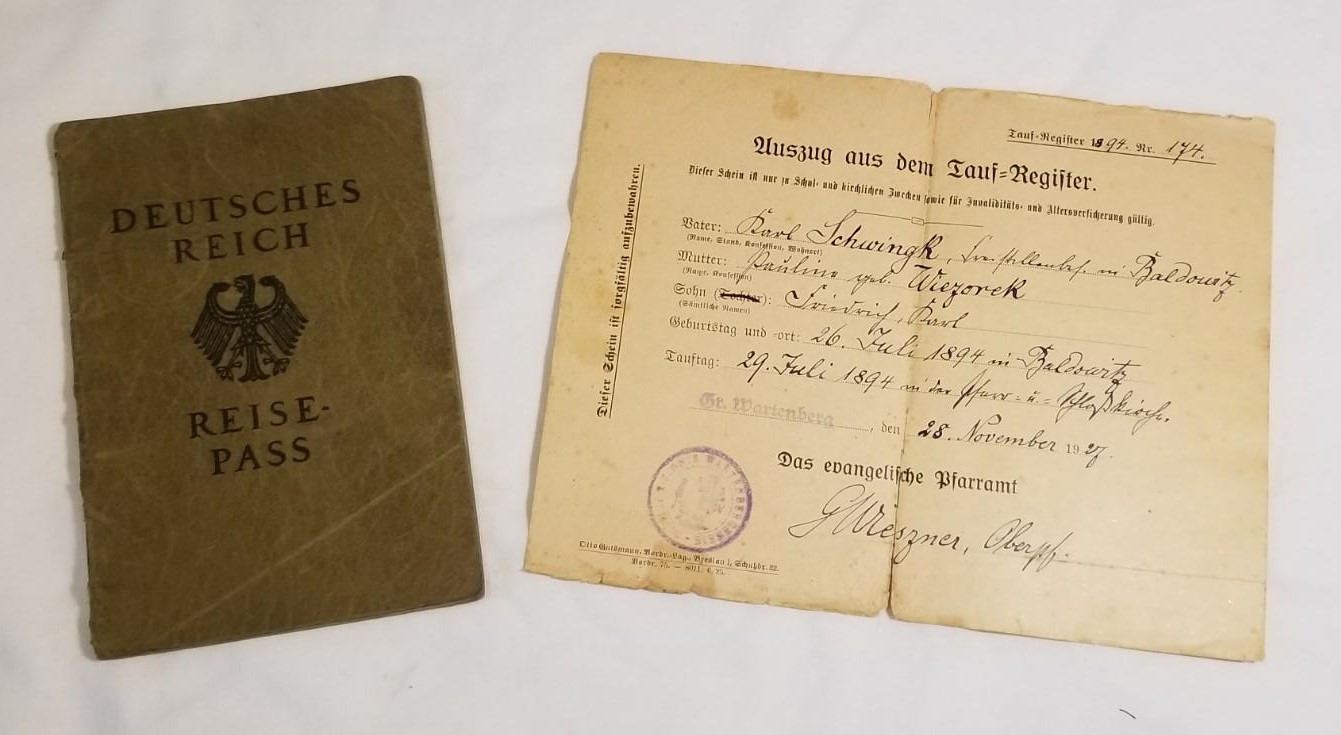 DEUTSCHES
REICH
REISE-
PASS
Tauf-Register 1894. Nr. 174.
Auszug aus dem Tauf-Register.
Dieser Schein ist nur zu Schul- und kirchlichen Zwecken sowie für Invaliditäts- und Altersversicherung gültig.
Dieser Schein ist sorgfältig aufzubewahren.
Vater: Karl Schwingk, Freistellenbes. in Baldowitz
(Name, Stand, Konfession, Wohnort)
Mutter: Pauline geb. Wiezorek
(Name, Konfession)
Sohn (Tochter): Friedrich, Karl
(Sämtliche Namen)
Geburtstag und -ort: 26. Juli 1894 in Baldowitz
Tauftag: 29. Juli 1894 in der Pfarr- u. Schloßkirche.
Gr. Wartenberg, den 28. November 1927.
Das evangelische Pfarramt
GWieszner, Oberpf.
Otto Gutsmann, Vordr.-Lag., Breslau 1, Schuhbr. 32.
Vordr. 75. — 8021. 6. 25.